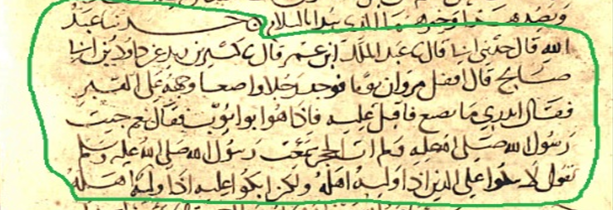 حدثنا عبد
الله قال حدثني ابي قال عبد الملك ابن عمر قال كثير بن زيد عن داود بن ابي
صالح قال اقبل مروان يوما فوجد رجلا واضعا وجهه على القبر
فقال اتدري ما تصنع فاقبل عليه فاذا هو ابو ايوب فقال نعم جيت
رسول الله صلى الله عليه وسلم ولم ات الحجر سمعت رسول الله صلى الله عليه وسلم
يقول لا تبكوا على الدين اذا وليه اهله ولكن ابكوا عليه اذا وليه غير اهله